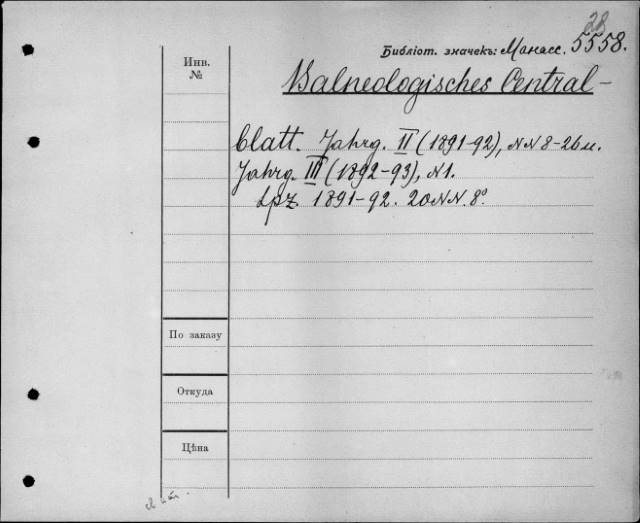 28
Библіот. значекъ: Манасс. 5558.
Инв.
№
Balneologisches Central-
blatt. Jahrg. II (1891-92), NN 8-26 u.
Jahrg. III (1892-93), N1.
Lpz. 1891-92. 20NN. 8°.
По заказу
Откуда
Цѣна